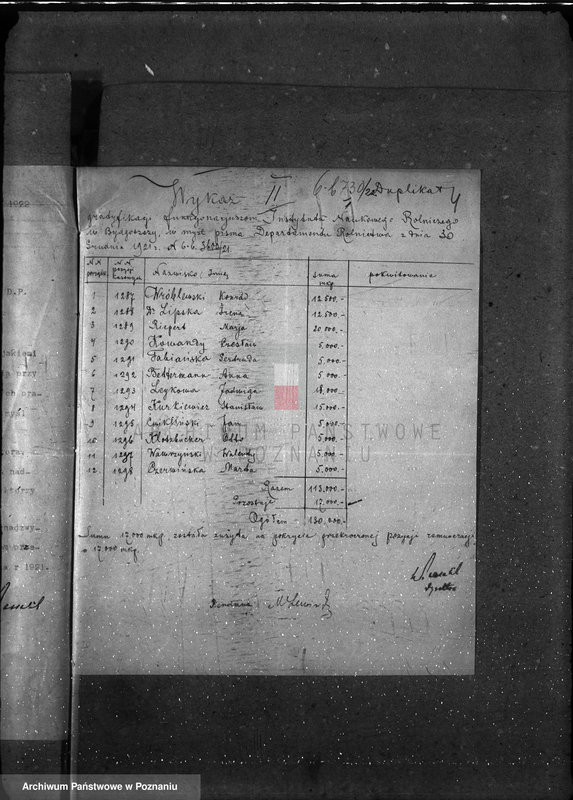 Wykaz II
Duplikat
gratyfikacji funkcjonarjuszom Instytutu Naukowego Rolniczego
w Bydgoszczy, w myśl pisma Departamentu Rolnictwa z dnia 30
Grudnia 1921 r.
N.N. porządk. N.N. pozycji Nazwisko i Imię suma mkp. pokwitowanie
1 1287 Wróblewski Konrad 12.500.-
2 1288 Dr Lipska Irena 12.500.-
3 1289 Riepert Marja 20.000.-
4 1290 Czesław 5.000.-
5 1291 Fabiańska Gertruda 5.000.-
6 1292 Anna 5.000.-
7 1293 Leykowa Jadwiga 18.000.-
8 1294 Kurkiewicz Stanisław 15.000.-
9 1295 Jan 5.000.-
10 1296 Otto 5.000.-
11 1297 Wawrzyński Walenty 5.000.-
12 1298 Marta 5.000.-
Razem 113.000.-
Pozostaje 17.000.-
Ogółem 130.000.-
Suma 17.000 mkp. została zużyta na pokrycie przekroczonej pozycji remuneracji
o 17.000 mkp.
ARCHIWUM PAŃSTWOWE
W POZNANIU
1922
D.P.
jakiemi
przy
nad-
który
r 1921.
Archiwum Państwowe w Poznaniu